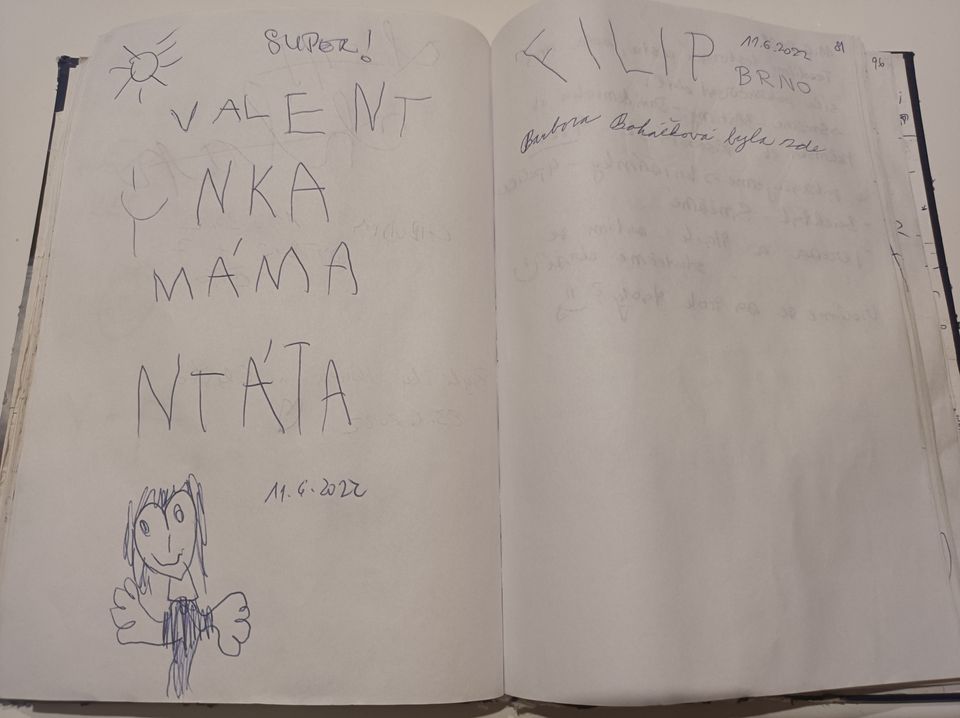 SUPER!
VALENT
NKA
MÁMA
NTÁTA
11.6.2022
FILIP 11.6.2022
BRNO
Barbora Boháčková byla zde
96